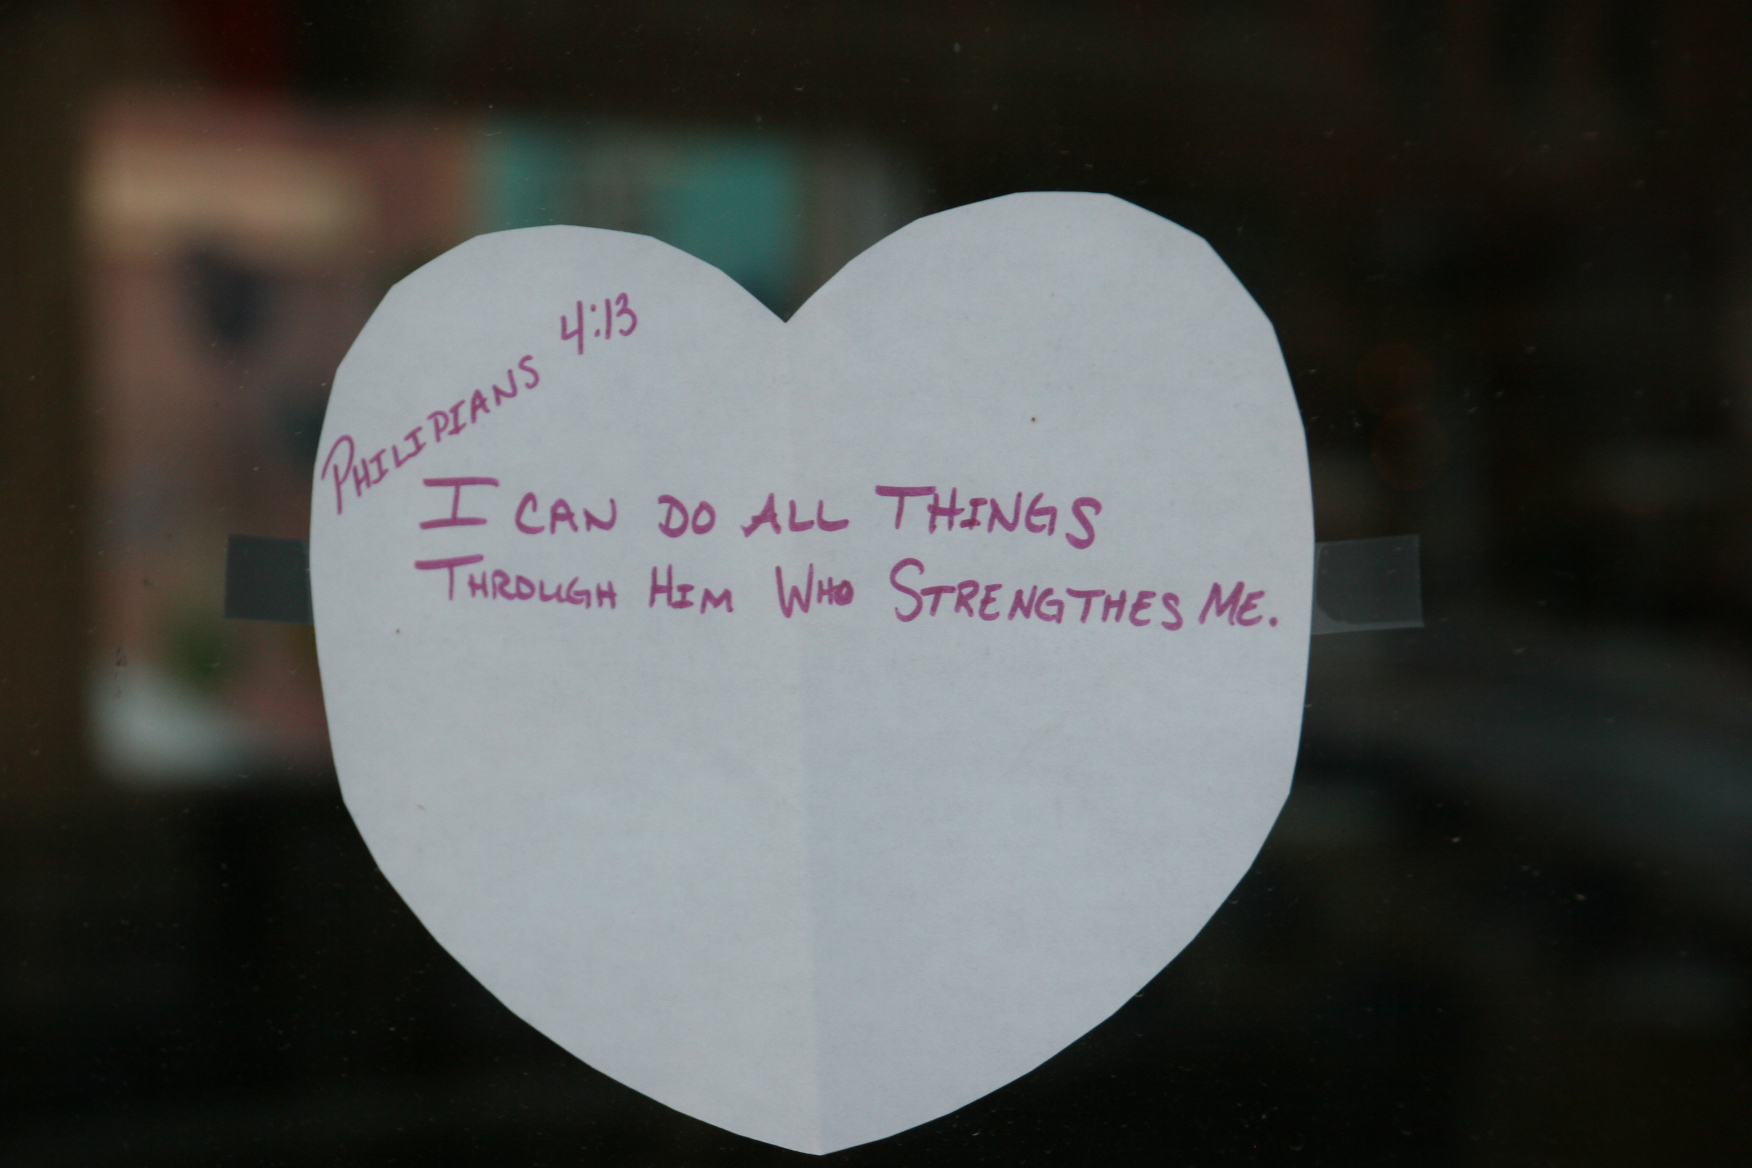 PHILIPIANS 4:13
I CAN DO ALL THINGS
THROUGH HIM WHO STRENGTHES ME.